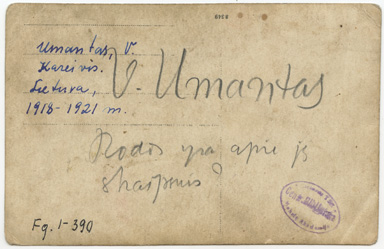 8349
Umantas, V.
Kareivis.
Lietuva,
1918-1921 m.
V. Umantas
Rodos yra apie jį
Fg. 1-390